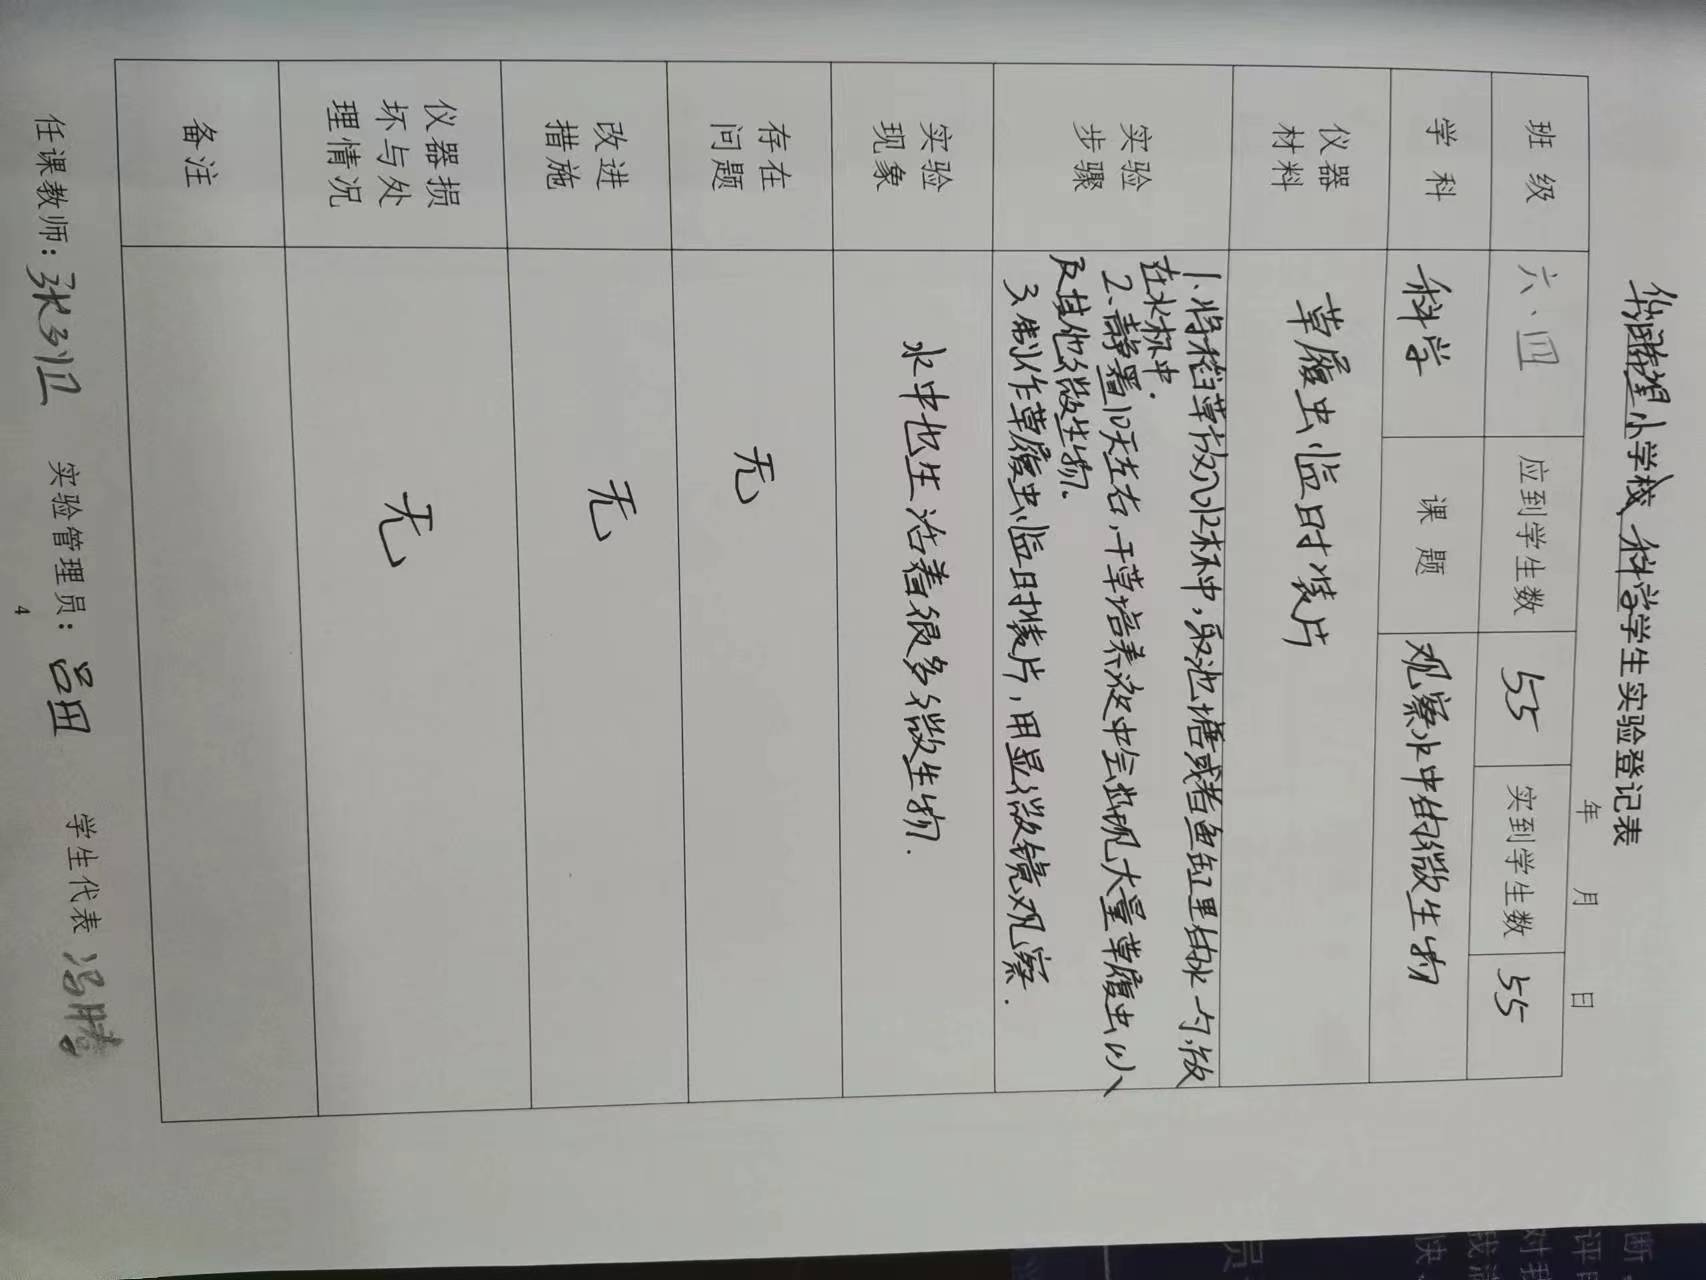 华润希望小学校 科学学生实验登记表
年 月 日
班级 六、四 应到学生数 55 实到学生数 55
学科 科学 课题 观察水中的微生物
仪器
材料
草履虫临时装片
实验
步骤
1.将稻草放入水杯中,取池塘或者鱼缸里的水一勺,放
在水杯中.
2.静置10天左右,干草培养液中会出现大量草履虫以
及其他微生物.
3.制作草履虫临时装片,用显微镜观察.
实验
现象
水中也生活着很多微生物.
存在
问题
无
改进
措施
无
仪器损
坏与处
理情况
无
备注
任课教师: 实验管理员: 吕田 学生代表 冯腾
4
员